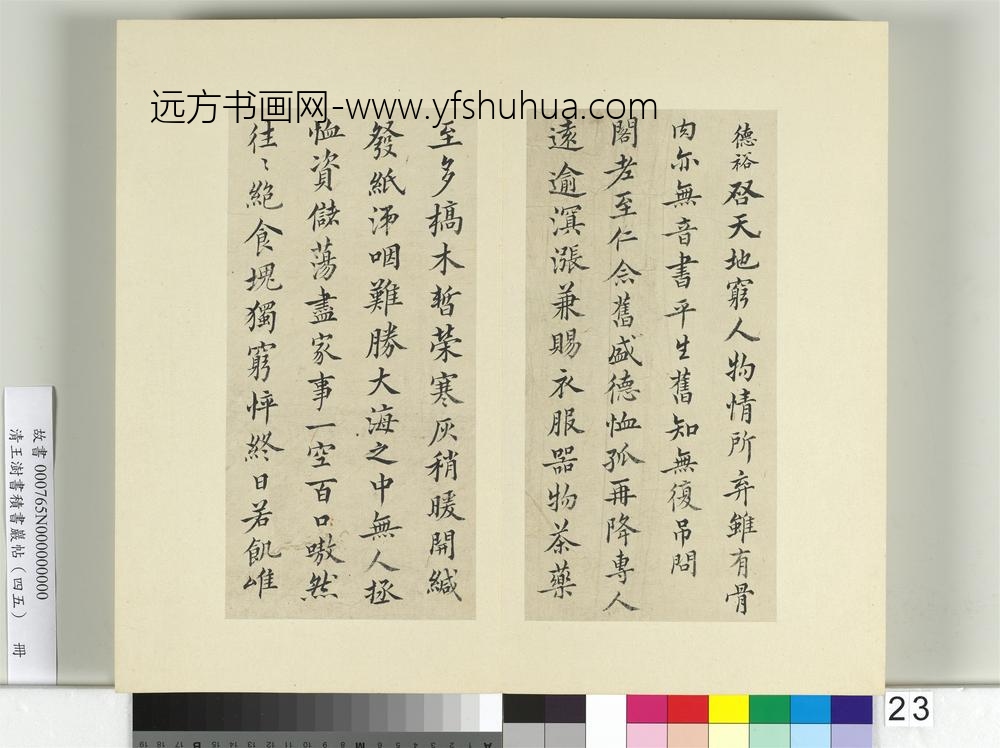 远方书画网-www.yfshuhua.com
德裕啓天地窮人物情所弃雖有骨
肉亦無音書平生舊知無復吊問
閣老至仁念舊盛德恤孤再降專人
遠逾溟漲兼賜衣服器物茶藥
至多槁木暫荣寒灰稍暖開緘
發紙涕咽難勝大海之中無人拯
恤資儲蕩盡家事一空百口嗷然
往〻絶食塊獨窮悴終日若飢唯
故書 000765N000000000
清王澍書積書巖帖（四五） 冊
23